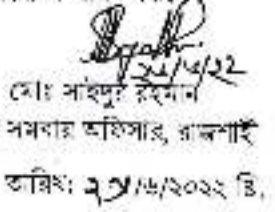 মোঃ সাইদুর রহমান
সমবায় অফিসার, রাজশাহী
তারিখ: ২৯/৬/২০২২ খ্রি.